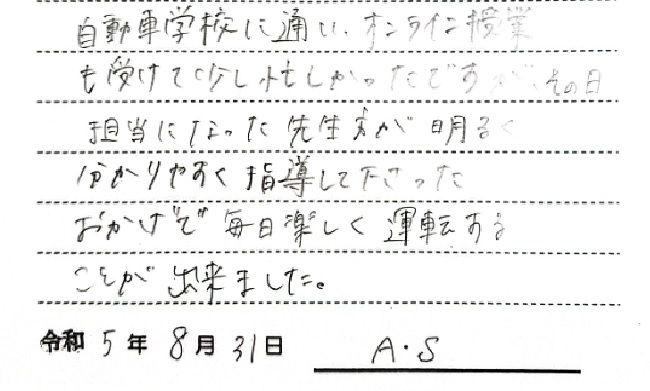 自動車学校に通い、オンライン授業
も受けて少し忙しかったですが、その日
担当になった先生方が明るく
分かりやすく指導して下さった
おかげで毎日楽しく運転する
ことが出来ました。
令和5年8月31日 A・S